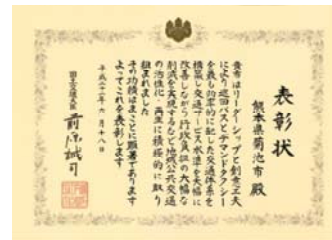 表彰状
熊本県菊池市 殿
貴市はリーダーシップと創意工夫
により巡回バスとデマンドタクシー
を最も効率的に配した交通体系を
構築し交通サービス水準を大幅に
改善しながら行政負担の大幅な
削減を実現するなど地域公共交通
の活性化・再生に積極的に取り
組まれました
その功績はまことに顕著であります
よってこれを表彰します
平成二十二年六月十八日
国土交通大臣 前原誠司